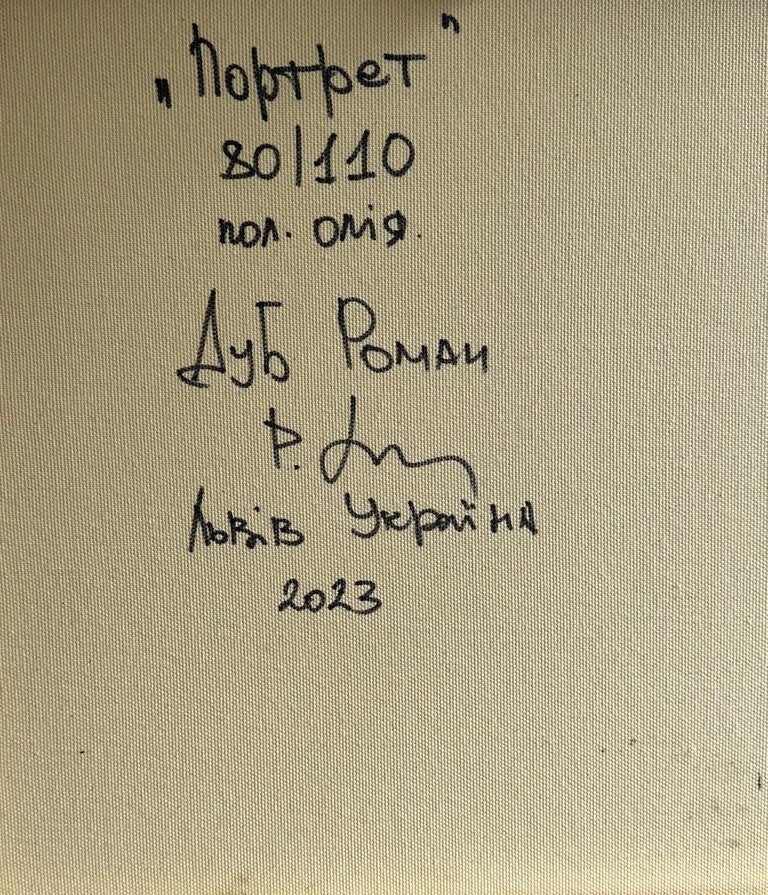 „Портрет"
80/110
пол. олія.
Дуб Роман
Львів Україна
2023